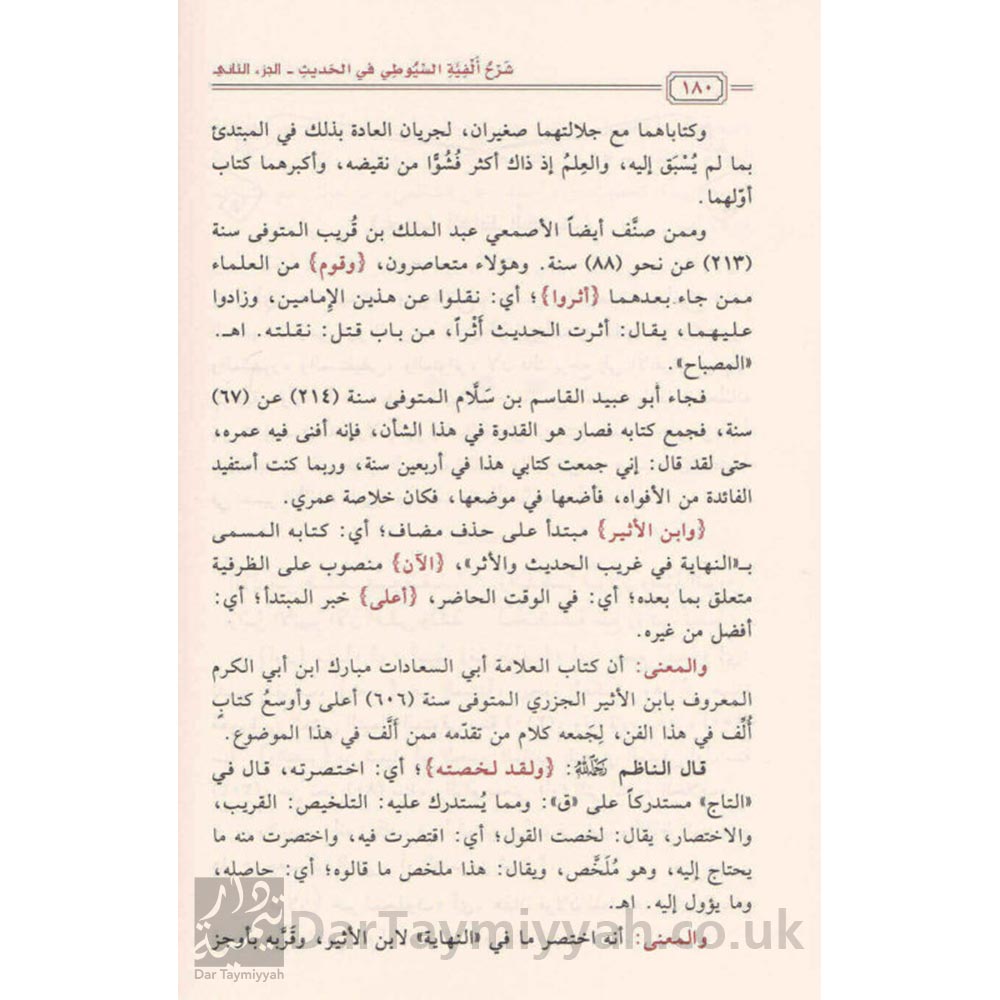 شَرْحُ أَلْفِيَّةِ السُّيُوطِي فِي الحَديثِ - الجزء الثاني
١٨٠
وكتاباهما مع جلالتهما صغيران، لجريان العادة بذلك في المبتدئ
بما لم يُسْبَق إليه، والعِلمُ إذ ذاك أكثر فُشُوًّا من نقيضه، وأكبرهما كتاب
أوّلهما.
وممن صنَّف أيضاً الأصمعي عبد الملك بن قُريب المتوفى سنة
(٢١٣) عن نحو (٨٨) سنة. وهؤلاء متعاصرون، {وقوم} من العلماء
ممن جاء بعدهما {أثروا}؛ أي: نقلوا عن هذين الإِمامين، وزادوا
عليهما، يقال: أثرت الحديث أَثْراً، من باب قتل: نقلته. اهـ.
«المصباح».
فجاء أبو عبيد القاسم بن سَلَّام المتوفى سنة (٢١٤) عن (٦٧)
سنة، فجمع كتابه فصار هو القدوة في هذا الشأن، فإنه أفنى فيه عمره،
حتى لقد قال: إني جمعت كتابي هذا في أربعين سنة، وربما كنت أستفيد
الفائدة من الأفواه، فأضعها في موضعها، فكان خلاصة عمري.
{وابن الأثير} مبتدأ على حذف مضاف؛ أي: كتابه المسمى
بـ«النهاية في غريب الحديث والأثر»، {الآن} منصوب على الظرفية
متعلق بما بعده؛ أي: في الوقت الحاضر، {أعلى} خبر المبتدأ؛ أي:
أفضل من غيره.
والمعنى: أن كتاب العلامة أبي السعادات مبارك ابن أبي الكرم
المعروف بابن الأثير الجزري المتوفى سنة (٦٠٦) أعلى وأوسعُ كتابٍ
أُلِّف في هذا الفن، لِجَمعه كلام من تقدّمه ممن أَلَّف في هذا الموضوع.
قال الناظم رحمه الله: {ولقد لخصته}؛ أي: اختصرته، قال في
«التاج» مستدركاً على «ق»: ومما يُستدرك عليه: التلخيص: القريب،
والاختصار، يقال: لخصت القول؛ أي: اقتصرت فيه، واختصرت منه ما
يحتاج إليه، وهو مُلَخَّص، ويقال: هذا ملخص ما قالوه؛ أي: حاصله،
وما يؤول إليه. اهـ.
والمعنى: أنه اختصر ما في «النهاية» لابن الأثير، وقَرَّبه بأوجز
دار تيمية
Dar Taymiyyah
DarTaymiyyah.co.uk